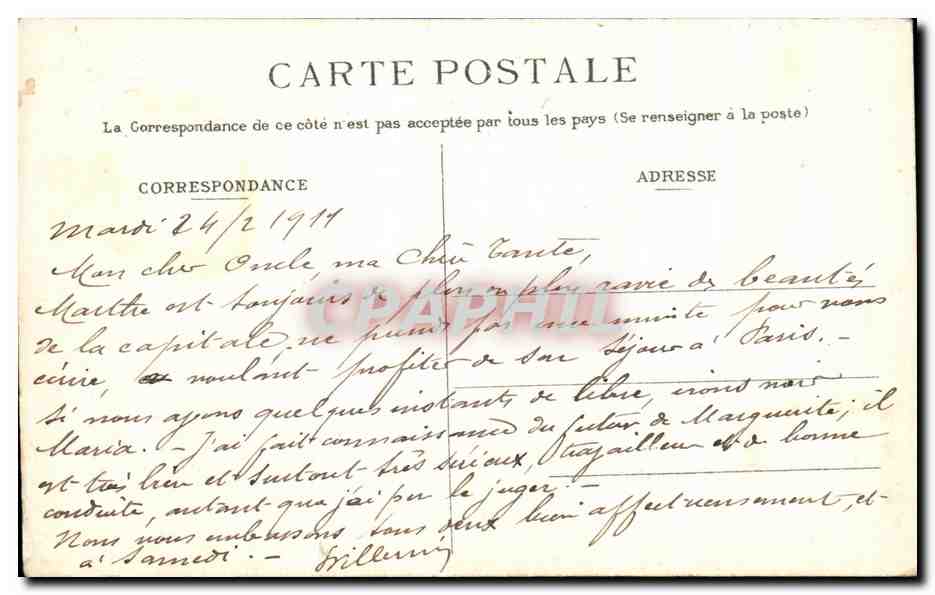 CARTE POSTALE
La Correspondance de ce côté n'est pas acceptée par tous les pays (Se renseigner à la poste)
CORRESPONDANCE
ADRESSE
Mardi 24/2 1911
Mon cher Oncle, ma Chère Tante,
Marthe est toujours de plus en plus ravie des beautés
de la capitale, ne perds pas une minute pour vous
écrire, voulant profiter de son séjour à Paris. -
Si nous ayons quelques instants de libre, irons voir
Maria. - J'ai fait connaissance du futur de Marguerite; il
est très bien et surtout très sérieux, travailleur et de bonne
conduite, autant que j'ai pu le juger. -
Nous vous embrassons tous deux bien affectueusement, et
à Samedi. -
CPAPHIL